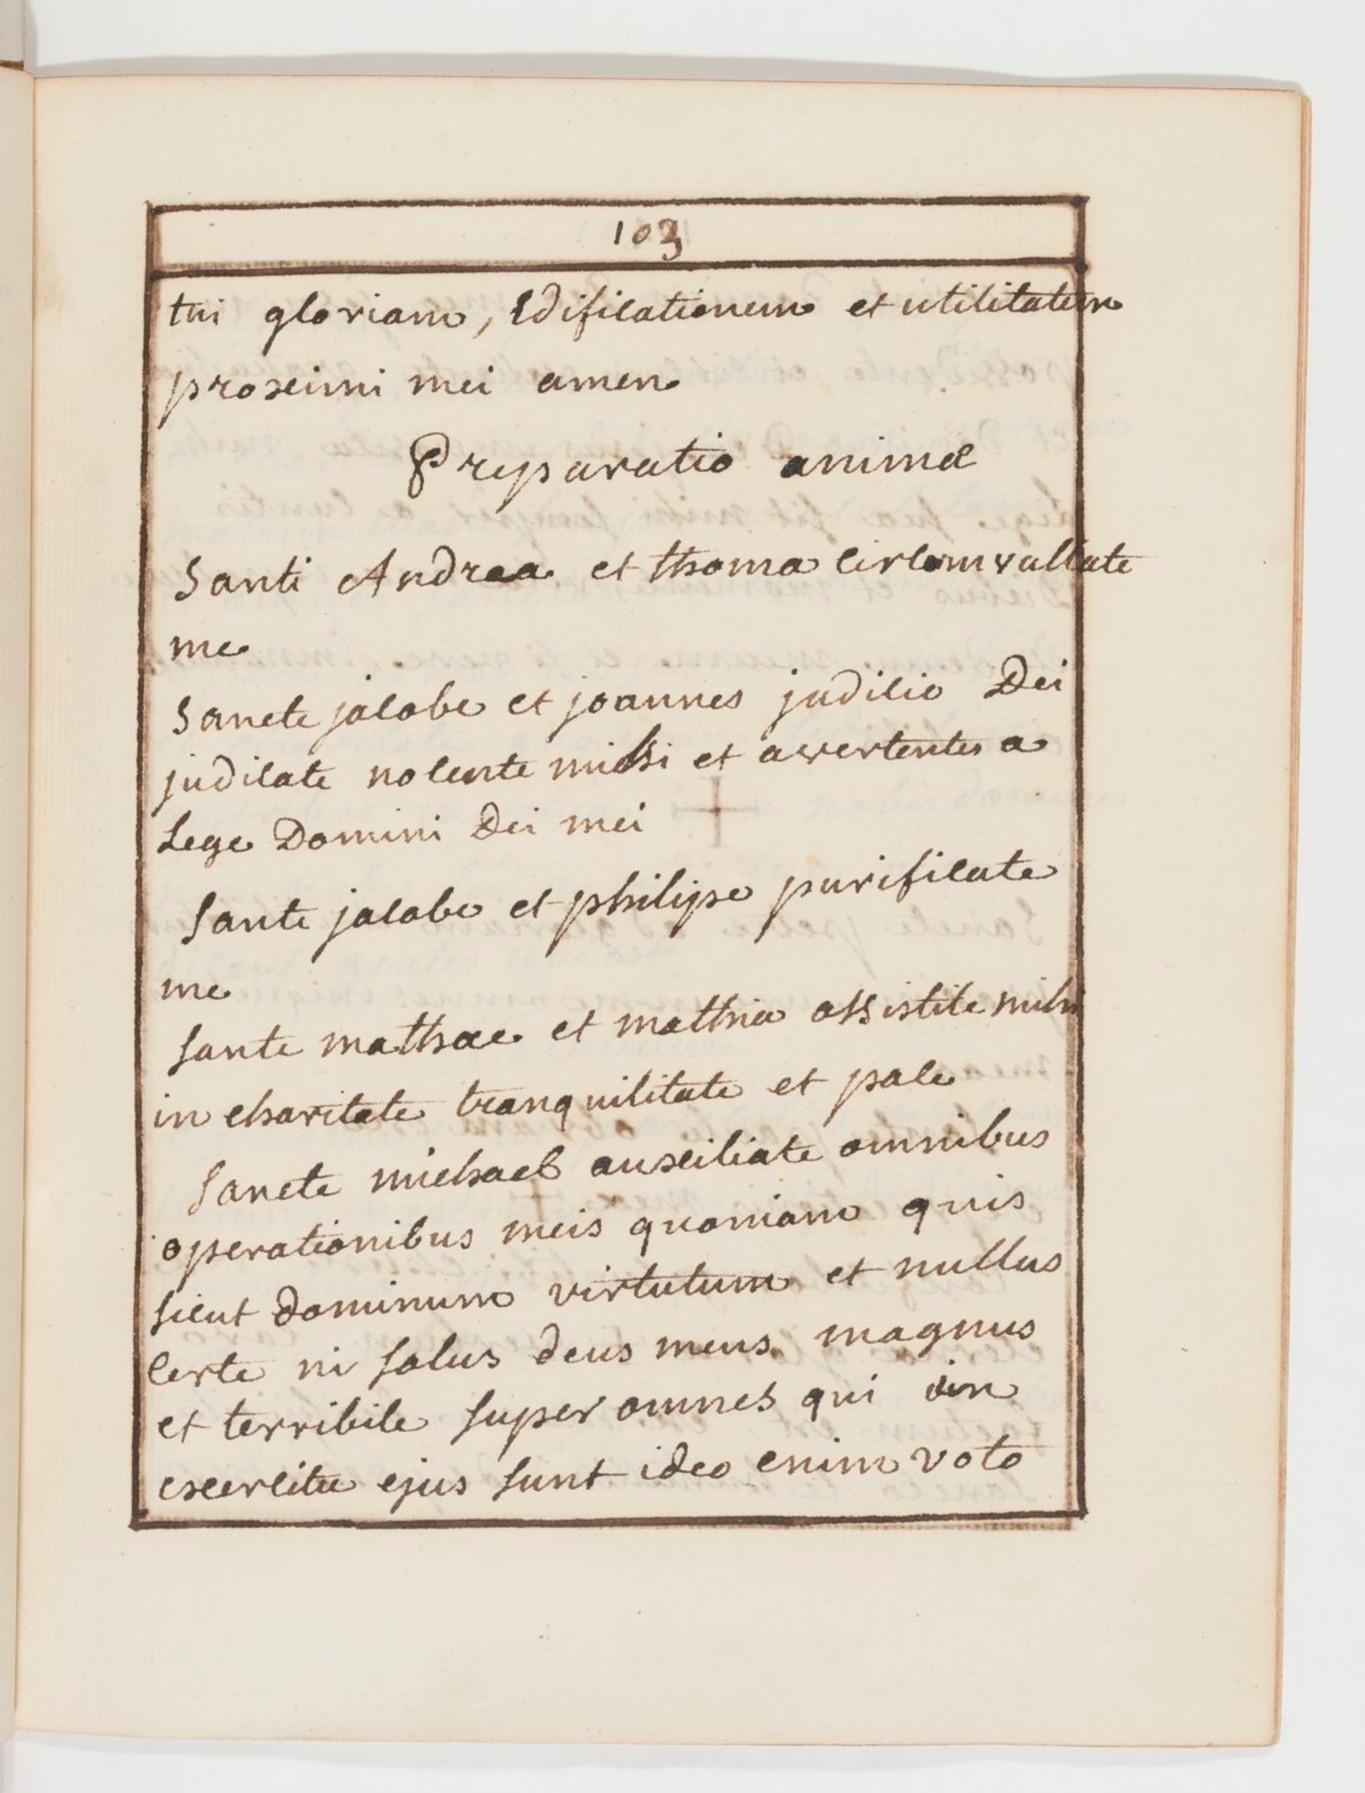 103
tui gloriam, Edificationem et utilitatem
proximi mei amen
Preparatio animæ
Santi Andrea et thoma circomvallate
me
Sancte jacobe et joannes judicio Dei
judicate nolente michi et avertentes a
Lege Domini Dei mei
Sante jacobe et philipe purificate
me
Sante mathæe et mathia assistite mihi
in charitate tranquilitate et pace
Sancte michael auxiliate omnibus
operationibus meis quoniam quis
sicut dominum virtutum et nullus
certe ni salus deus meus magnus
et terribile super omnes qui in
exercitu ejus sunt ideo enim voto